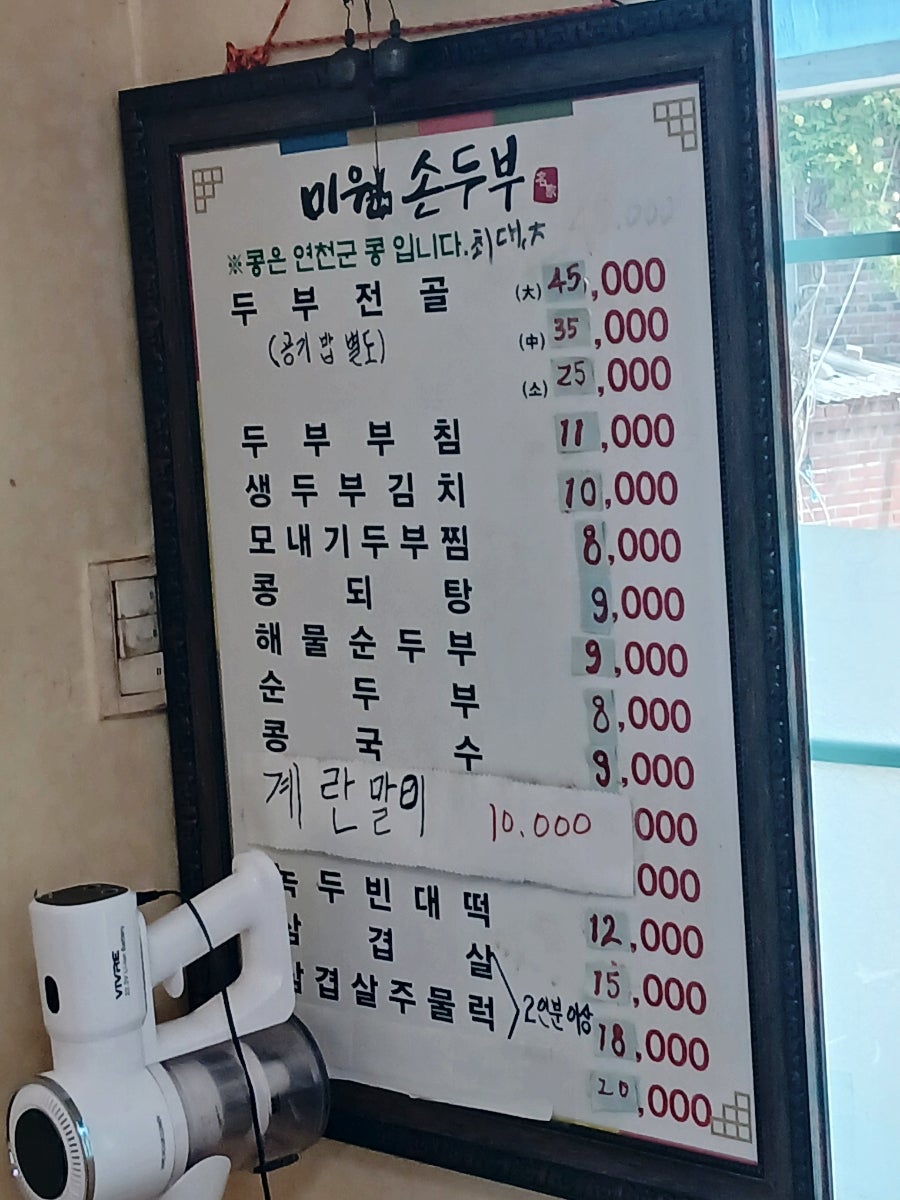 미원 손두부
名家
※콩은 연천군 콩 입니다. 최대,大
두부전골 (大) 45,000
(공기밥 별도) (中) 35,000
(소) 25,000
두부부침 11,000
생두부김치 10,000
모내기두부찜 8,000
콩되탕 9,000
해물순두부 9,000
순두부 8,000
콩국수 9,000
계란말이 10.000 000
000
녹두빈대떡 12,000
삼겹살 15,000
삼겹살주물럭 2인분이상 18,000
20,000
VIVRE